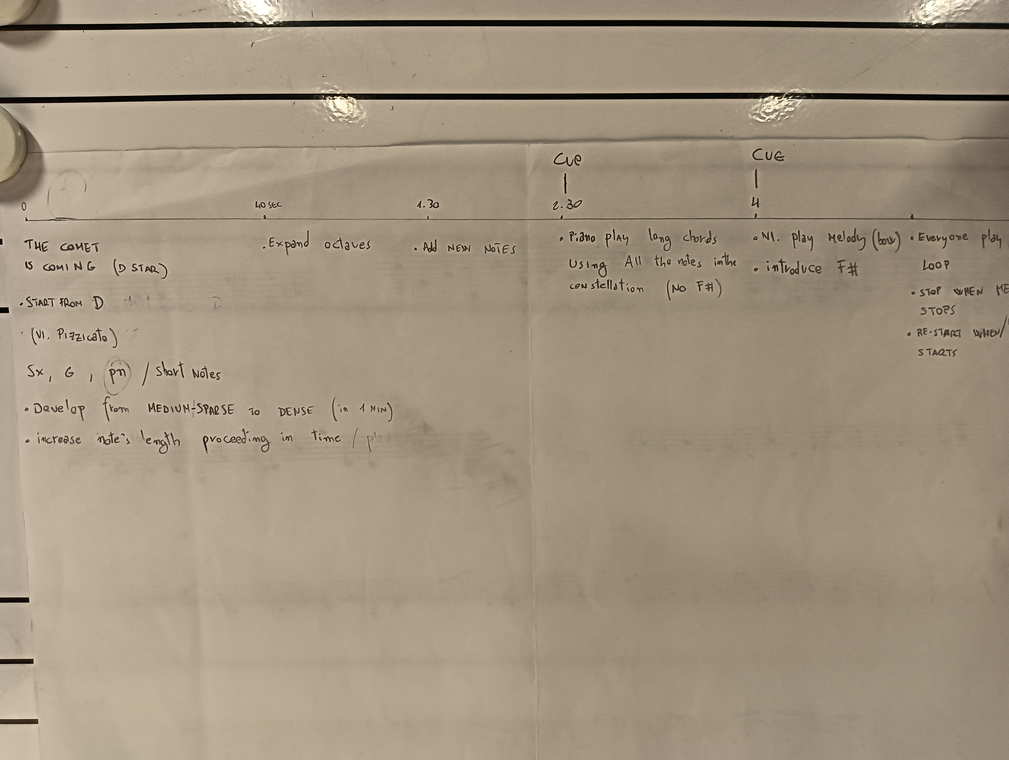 Cue
CUE
0
40 SEC
1.30
2.30
4
THE COMET
IS COMING (D STAR)
• START FROM D
(Vl. Pizzicato)
Sx, G, pn / Short Notes
• Develop from MEDIUM-SPARSE TO DENSE (in 1 MIN)
• increase note's length proceeding in time /
• Expand octaves
• Add NEW NOTES
• Piano play long chords
Using All the notes in the
constellation (NO F#)
• Vl. play Melody (bow)
• introduce F#
• Everyone play
LOOP
• STOP WHEN ME
STOPS
• RE-START WHEN/
STARTS